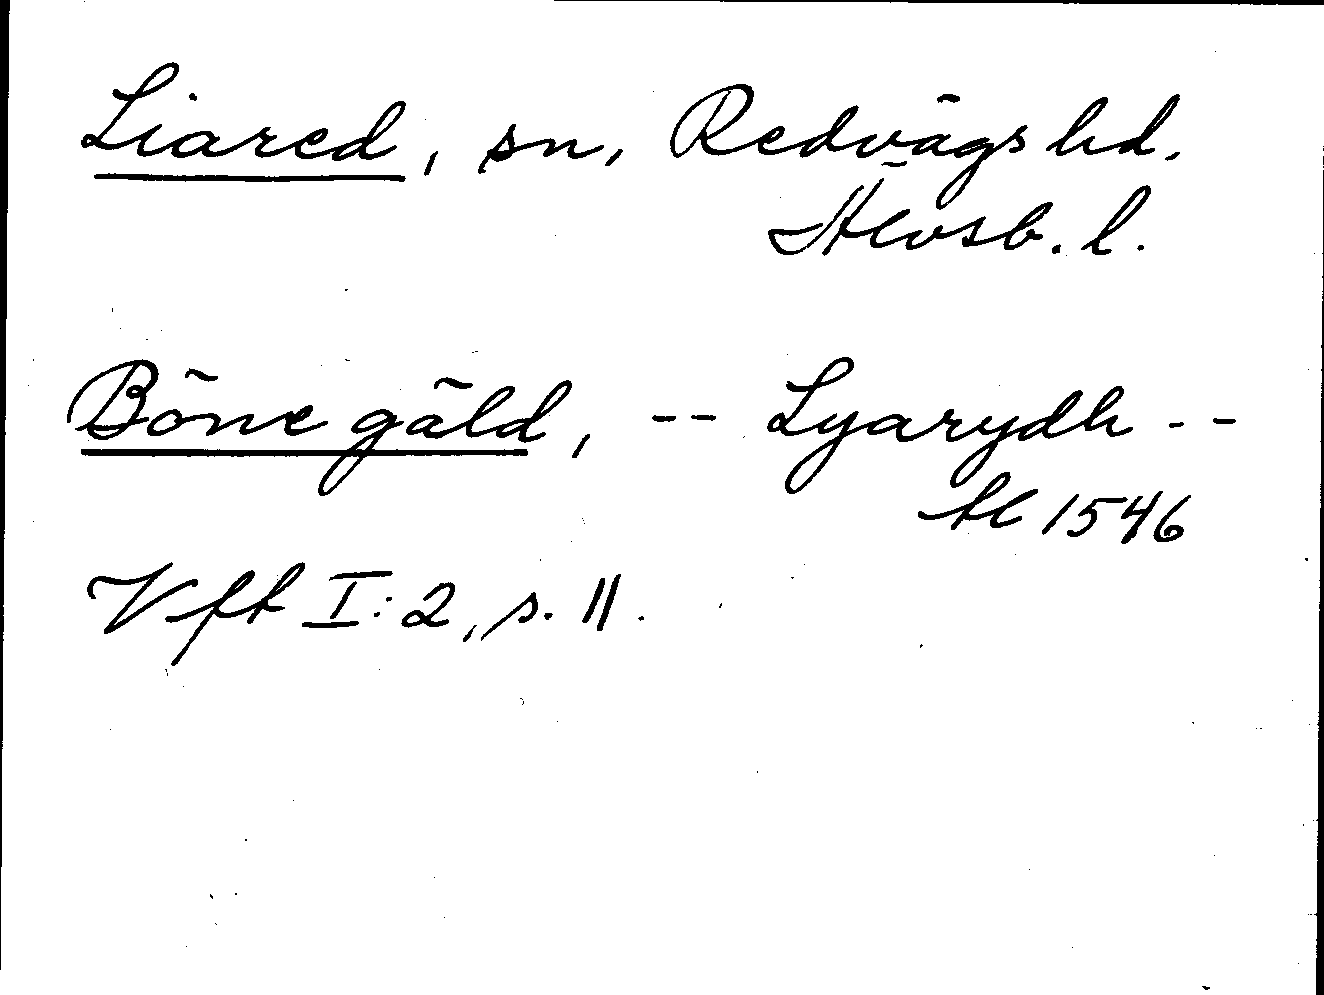 Liared, sn, Redvägs hd.
Älvsb. l.
Böne gäld, -- Lyarydh --
Al 1546
Vft I:2, s. 11.